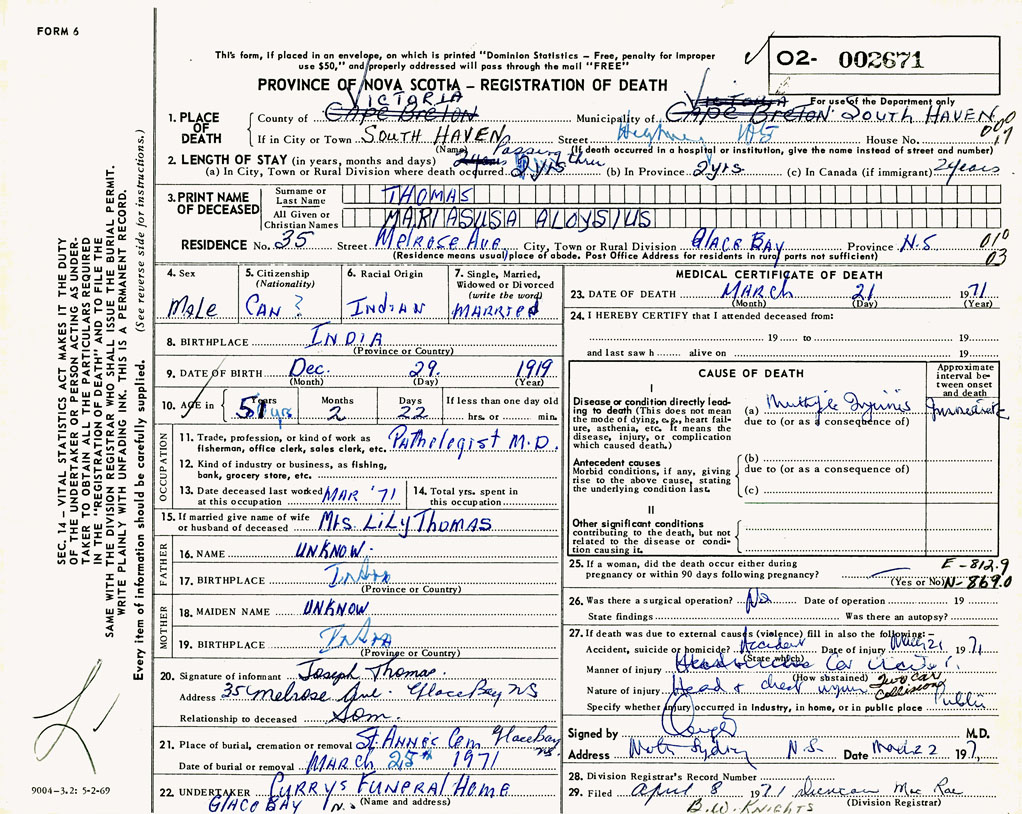 FORM 6
This form, if placed in an envelope, on which is printed "Dominion Statistics – Free, penalty for improper
use $50," and properly addressed will pass through the mail "FREE"
02- 002671
For use of the Department only
PROVINCE OF NOVA SCOTIA – REGISTRATION OF DEATH
1. PLACE OF DEATH
County of VICTORIA CAPE BRETON Municipality of VICTORIA CAPE BRETON SOUTH HAVEN
If in City or Town SOUTH HAVEN Street Highway House No.
(Name) (If death occurred in a hospital or institution, give the name instead of street and number)
2. LENGTH OF STAY (in years, months and days) Passing thru
(a) In City, Town or Rural Division where death occurred 2 yrs (b) In Province 2 yrs (c) In Canada (if immigrant) 2 years
3. PRINT NAME OF DECEASED
Surname or Last Name THOMAS
All Given or Christian Names MARIASUSA ALOYSIUS
RESIDENCE No. 35 Street Melrose Ave. City, Town or Rural Division GLACE BAY Province N.S
(Residence means usual place of abode. Post Office Address for residents in rural parts not sufficient)
010
03
4. Sex Male
5. Citizenship (Nationality) CAN ?
6. Racial Origin INDIAN
7. Single, Married, Widowed or Divorced (write the word) MARRIED
8. BIRTHPLACE INDIA
(Province or Country)
9. DATE OF BIRTH Dec. 29. 1919
(Month) (Day) (Year)
10. AGE in Years 51 yrs Months 2 Days 22 If less than one day old
hrs. or min.
OCCUPATION
11. Trade, profession, or kind of work as fisherman, office clerk, sales clerk, etc. Pathologist M.D.
12. Kind of industry or business, as fishing, bank, grocery store, etc.
13. Date deceased last worked at this occupation MAR '71
14. Total yrs. spent in this occupation
15. If married give name of wife or husband of deceased Mrs. LILY THOMAS
FATHER
16. NAME UNKNOW.
17. BIRTHPLACE India
(Province or Country)
MOTHER
18. MAIDEN NAME UNKNOW
19. BIRTHPLACE India
(Province or Country)
20. Signature of informant Joseph Thomas.
Address 35 Melrose Ave. Glace Bay NS
Relationship to deceased Son.
21. Place of burial, cremation or removal St. Anne's Cem. Glace Bay NS.
Date of burial or removal MARCH 25th 1971
22. UNDERTAKER CURRY'S FUNERAL HOME
(Name and address)
GLACE BAY N.S.
MEDICAL CERTIFICATE OF DEATH
23. DATE OF DEATH MARCH 21 1971
(Month) (Day) (Year)
24. I HEREBY CERTIFY that I attended deceased from:
19 to 19
and last saw h alive on 19
CAUSE OF DEATH
Approximate interval between onset and death
I
Disease or condition directly leading to death (This does not mean the mode of dying, e.g., heart failure, asthenia, etc. It means the disease, injury, or complication which caused death.)
(a) Multiple Injuries Immediate
due to (or as a consequence of)
Antecedent causes
Morbid conditions, if any, giving rise to the above cause, stating the underlying condition last.
(b)
due to (or as a consequence of)
(c)
II
Other significant conditions contributing to the death, but not related to the disease or condition causing it.
25. If a woman, did the death occur either during pregnancy or within 90 days following pregnancy?
(Yes or No)
E-812.9
N-869.0
26. Was there a surgical operation? No Date of operation 19
State findings Was there an autopsy?
27. If death was due to external causes (violence) fill in also the following:–
Accident, suicide or homicide? Accident Date of injury Mar 21 1971
(State which)
Manner of injury Car
(How sustained)
Two Car Collision
Nature of injury Head & chest
Specify whether injury occurred in industry, in home, or in public place Public
Signed by M.D.
Address North Sydney N.S. Date March 22 1971
28. Division Registrar's Record Number
29. Filed April 8 1971 Duncan Mac Rae
(Division Registrar)
B.W. KNIGHTS
SEC. 14 – VITAL STATISTICS ACT MAKES IT THE DUTY
OF THE UNDERTAKER OR PERSON ACTING AS UNDER-
TAKER TO OBTAIN ALL THE PARTICULARS REQUIRED
IN THE "REGISTRATION OF DEATH" AND TO FILE THE
SAME WITH THE DIVISION REGISTRAR WHO SHALL ISSUE THE BURIAL PERMIT.
WRITE PLAINLY WITH UNFADING INK. THIS IS A PERMANENT RECORD.
Every item of information should be carefully supplied. (See reverse side for instructions.)
9004-3.2: 5-2-69